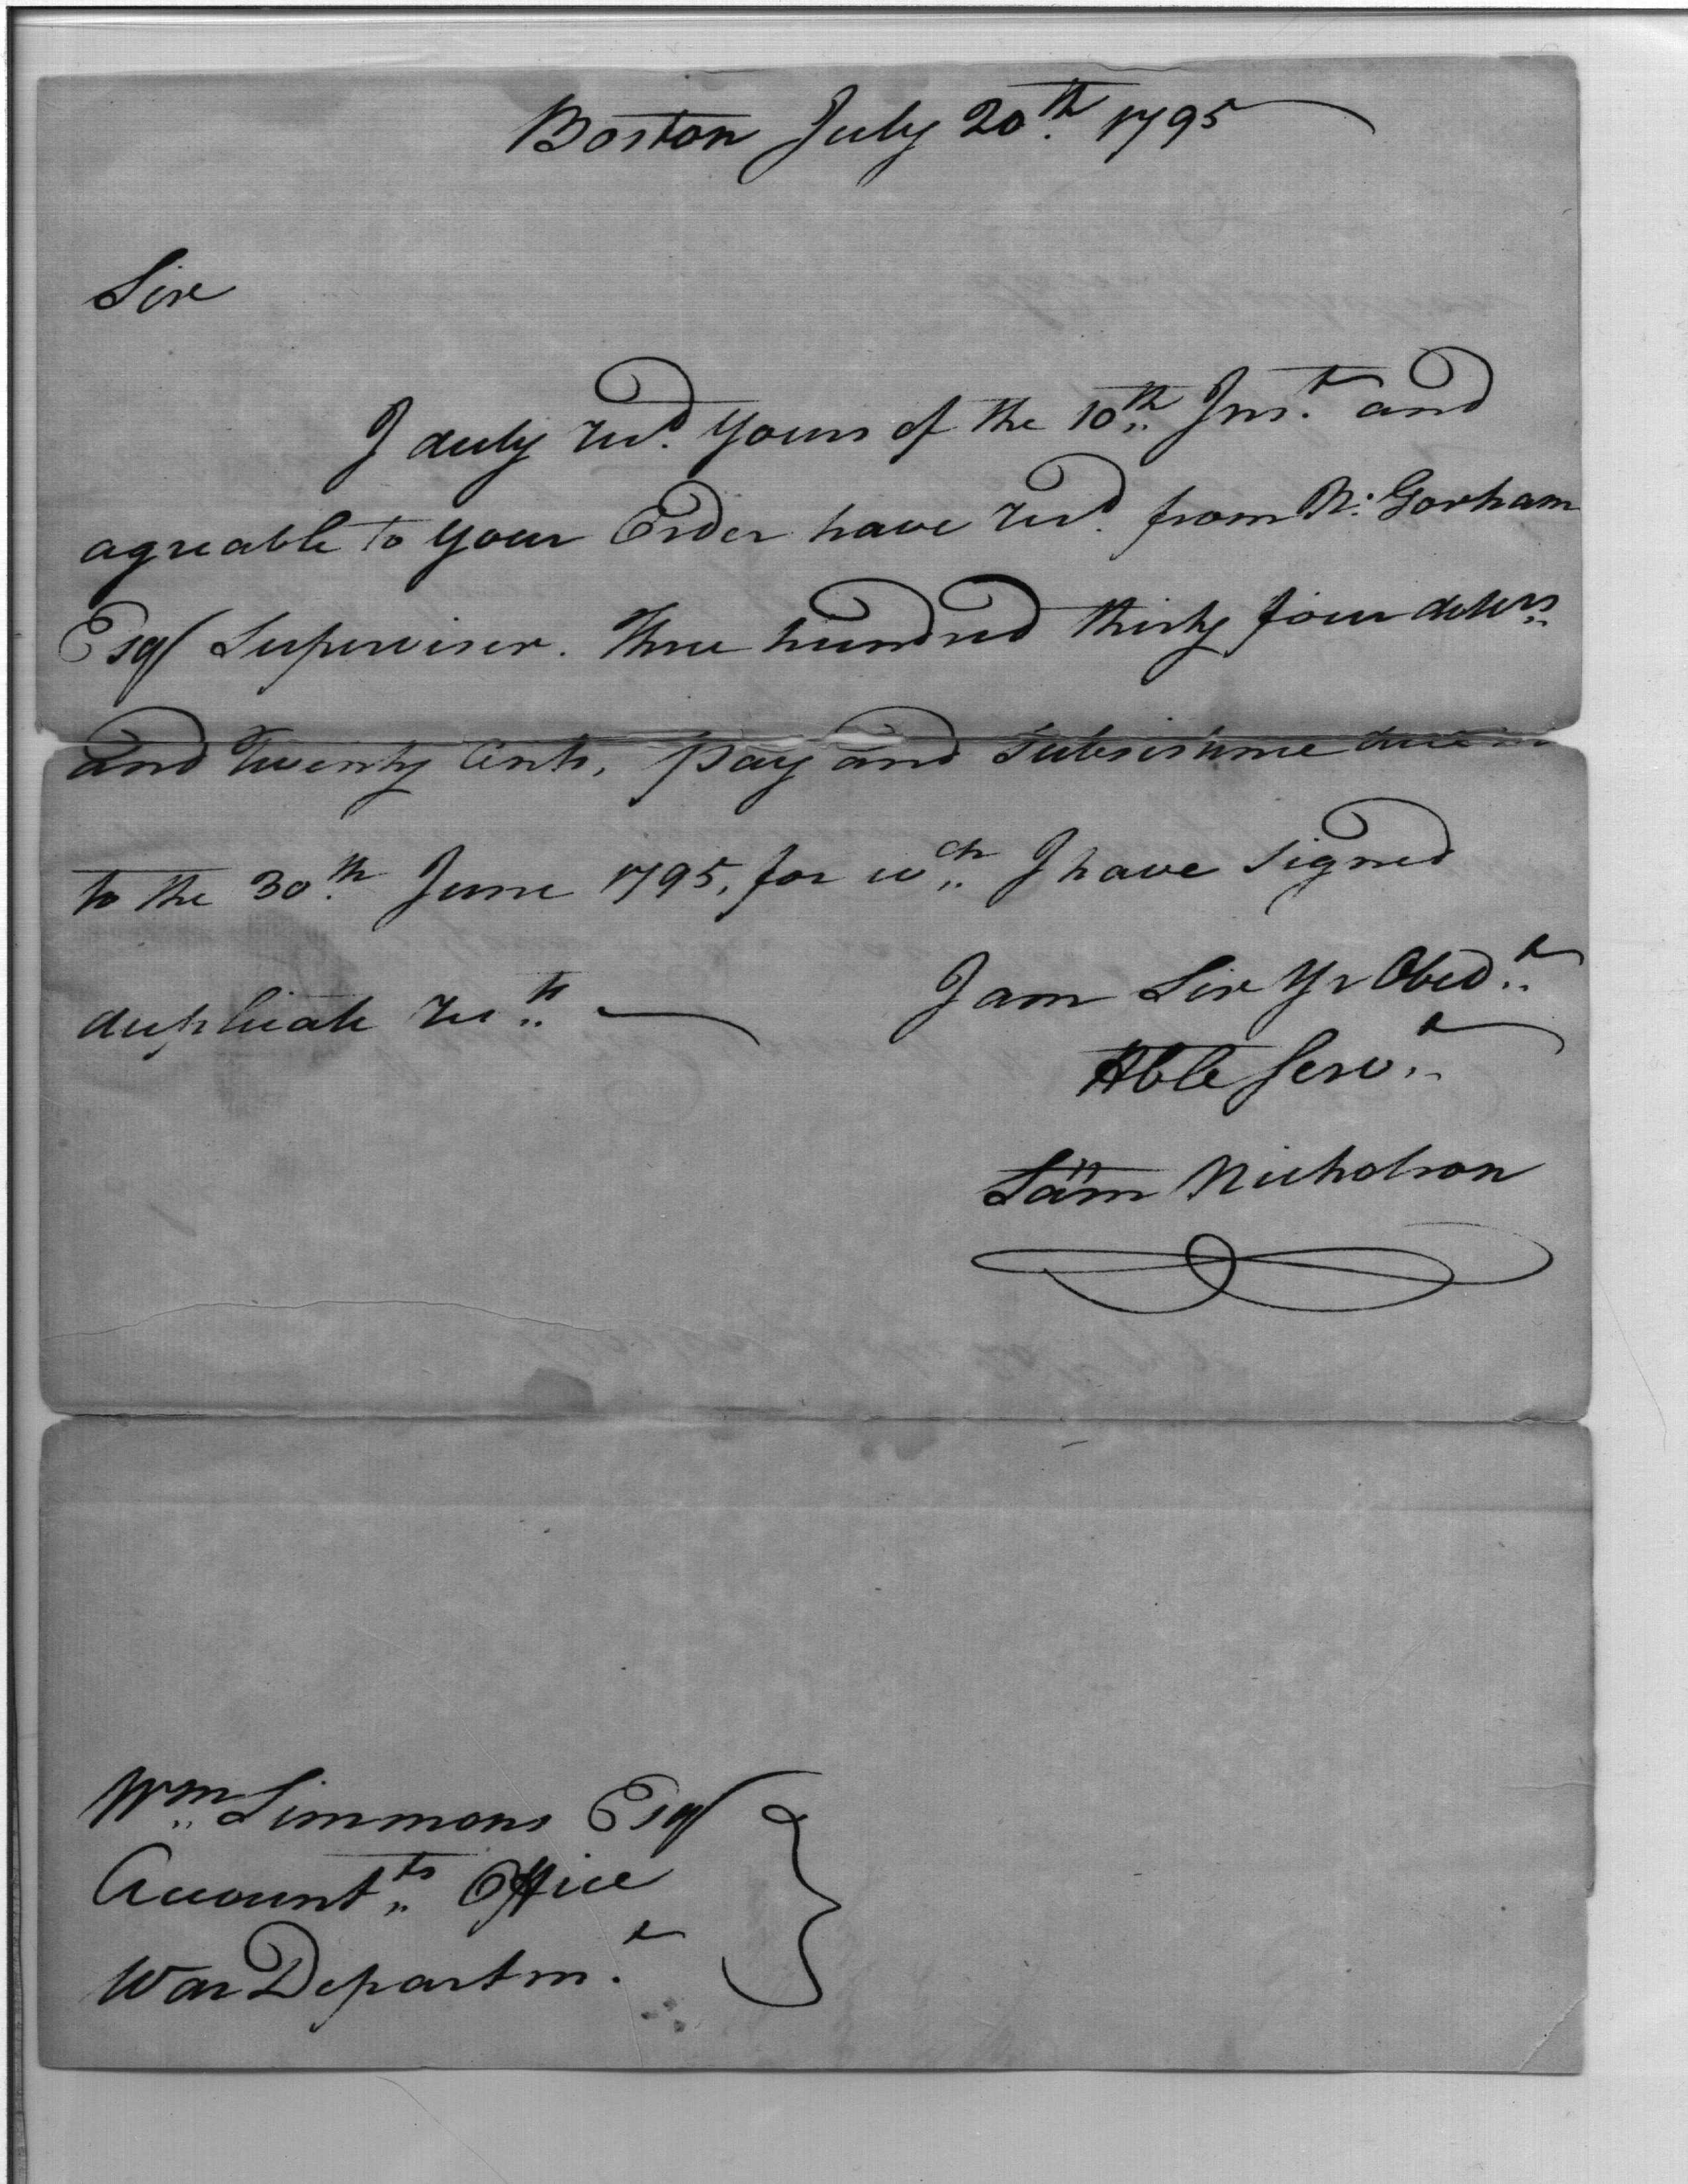 Boston July 20th 1795
Sir
I duly recd. yours of the 10th Inst. and
agreable to your Order have recd. from N. Gorham
Esqr Superviser. Three hundred thirty four dollrs
and Twenty Cents, pay and Subsistence due
to the 30th June 1795, for wch I have signed
duplicate rects
I am Sir Yr Obedt
Hble Servt
Sam Nicholson
Wm Simmons Esqr
Accountts Office
War Departmt